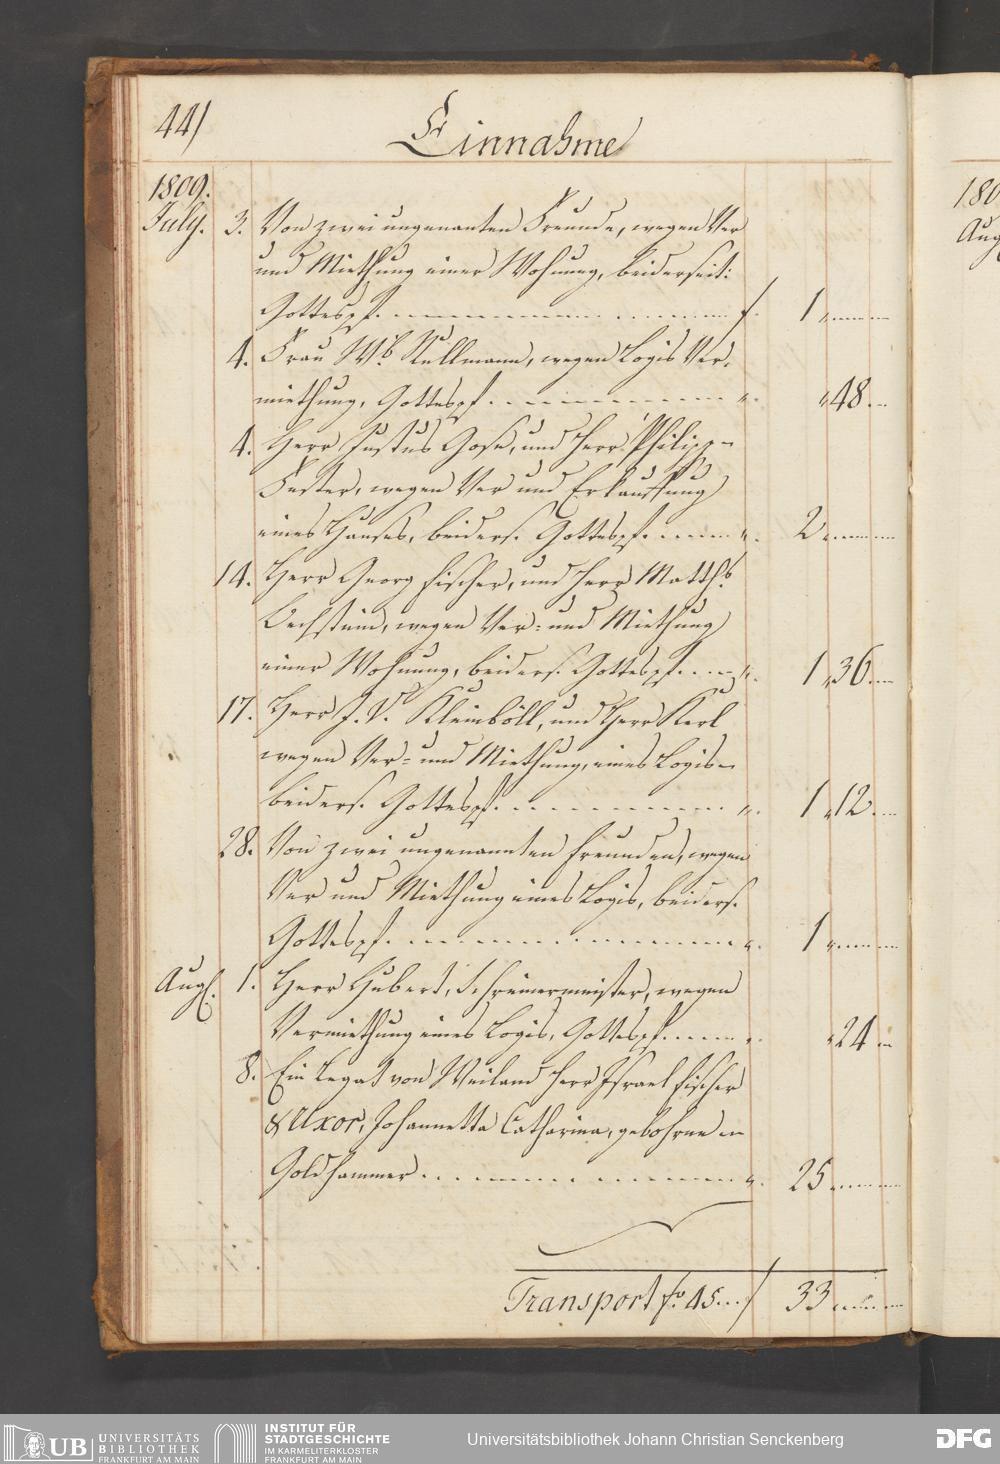 44/
Einnahme
1809.
July. 3. Von zwei ungenanten Freunde, wegen Ver
und Miethung einer Wohnung, beiderseit:
Gottespf. f. 1 „
4. Frau Wb. Kullmann, wegen Logis Ver-
miethung, Gottespf. „ „ 48.
4. Herr Justus Gose, und Herr Philipp
Fester, wegen Ver und Erkauffung
eines Hauses, beiders. Gottespf. „ 2
14. Herr Georg Fischer, und Herr Matths.
Oechstein, wegen Ver- und Miethung
einer Wohnung, beiders. Gottespf. „ 1 „ 36.
17. Herr J. V. Kleinböll, und Herr Kerl
wegen Ver- und Miethung, eines Logis
beiders. Gottespf. „ 1 „ 12.
28. Von zwei ungenannten Freunden, wegen
Ver und Miethung eines Logis, beiders.
Gottespf. „ 1 „
Augs. 1. Herr Hubert, Schreinermeister, wegen
Vermiethung eines Logis, Gottespf. „ „ 24
8. Ein Legat von Weiland Herr Israel Fischer
& Uxor, Johannetta Catharina, gebohrne
Goldhammer „ 25
Transport fo. 45 f 33
180
Aug
UB UNIVERSITÄTS
BIBLIOTHEK
FRANKFURT AM MAIN
INSTITUT FÜR
STADTGESCHICHTE
IM KARMELITERKLOSTER
FRANKFURT AM MAIN
Universitätsbibliothek Johann Christian Senckenberg
DFG